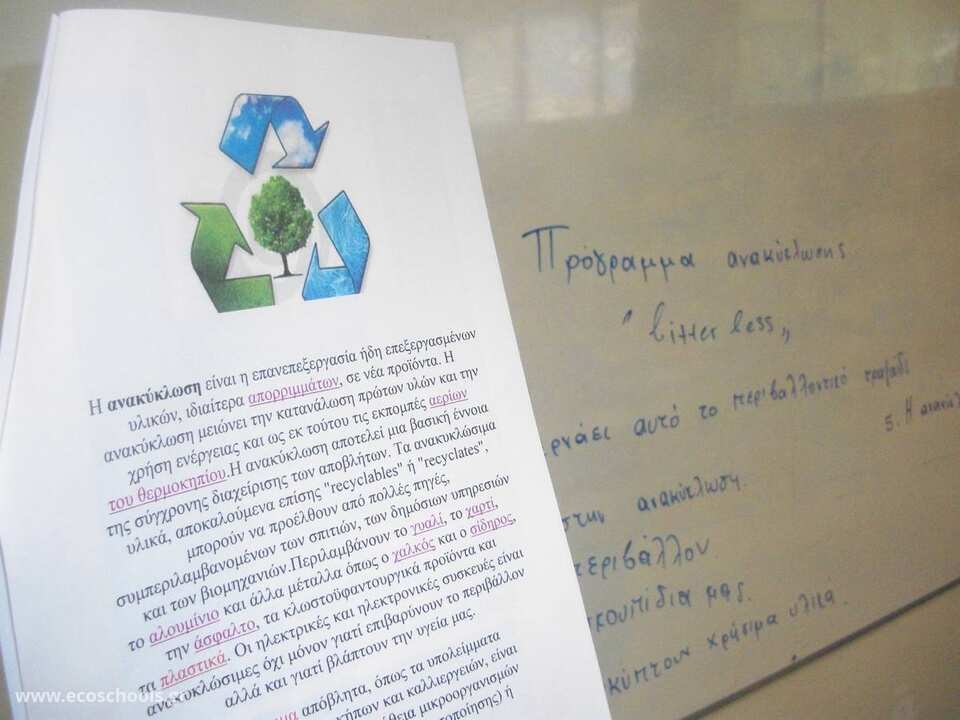 Η ανακύκλωση είναι η επανεπεξεργασία ήδη επεξεργασμένων
υλικών, ιδιαίτερα απορριμμάτων, σε νέα προϊόντα. Η
ανακύκλωση μειώνει την κατανάλωση πρώτων υλών και την
χρήση ενέργειας και ως εκ τούτου τις εκπομπές αερίων
του θερμοκηπίου.Η ανακύκλωση αποτελεί μια βασική έννοια
της σύγχρονης διαχείρισης των αποβλήτων. Τα ανακυκλώσιμα
υλικά, αποκαλούμενα επίσης "recyclables" ή "recyclates",
μπορούν να προέλθουν από πολλές πηγές,
συμπεριλαμβανομένων των σπιτιών, των δημόσιων υπηρεσιών
και των βιομηχανιών.Περιλαμβάνουν το γυαλί, το χαρτί,
το αλουμίνιο και άλλα μέταλλα όπως ο χαλκός και ο σίδηρος,
την άσφαλτο, τα κλωστοϋφαντουργικά προϊόντα και
τα πλαστικά. Οι ηλεκτρικές και ηλεκτρονικές συσκευές είναι
ανακυκλώσιμες όχι μόνον γιατί επιβαρύνουν το περιβάλλον
αλλά και γιατί βλάπτουν την υγεία μας.
απόβλητα, όπως τα υπολείμματα
κήπων και καλλιεργειών, είναι
μικροοργανισμών
ή
Πρόγραμμα ανακύκλωσης
"litter less"
αυτό το περιβαλλοντικό τραγούδι
5. Η
στην ανακύκλωση.
περιβάλλον.
σκουπίδια μας.
χρήσιμα υλικά.
www.ecoschools.gr